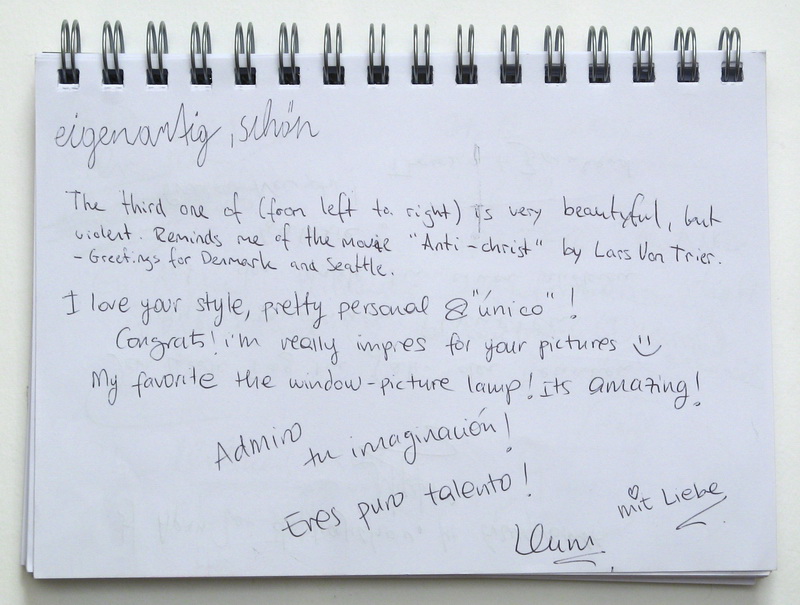 eigenartig, schön
The third one of (from left to right) is very beautyful, but
violent. Reminds me of the movie "Anti-christ" by Lars Von Trier.
- Greetings for Denmark and Seattle.
I love your style, pretty personal & "único" !
Congrats! i'm really impres for your pictures
My favorite the window-picture lamp! Its amazing!
Admiro tu imaginación!
Eres puro talento!
mit Liebe
Llum